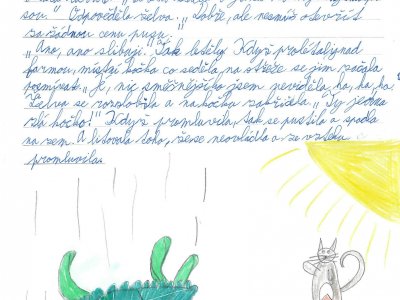 sou." Odpověděla želva: „Dobře, ale nesmíš otevřít
za žádnou cenu pusu.
„Ano, ano slibuji." Tak letěly. Když prolétaly nad
farmou, místní kočka co seděla na střeše se jim začala
posmívat. „Jé, nic směšnějšího jsem neviděla, ha, ha, ha."
Želva se rozzlobila a na kočku zakřičela „Ty jedna
zlá kočko!" Když promluvila, tak se pustila a spadla
na zem. A litovala toho, že se neovládla a ze vzteku
promluvila.